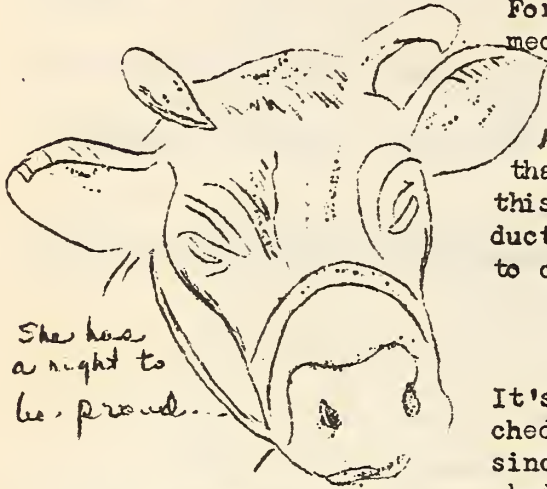 For
mec
tha
this
duct
to c
She has
a right to
be proud...
It's
ched
sinc